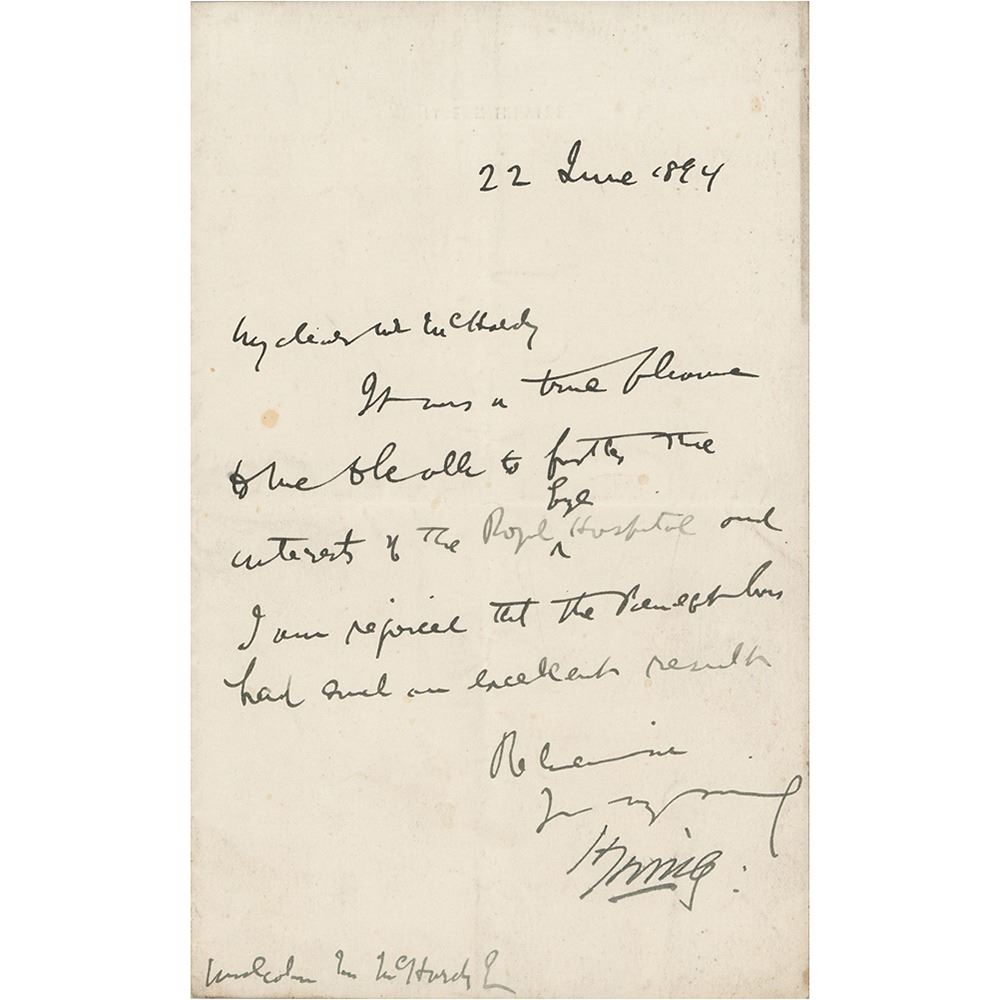 22 June 1894
My dear Mr McHardy
It was a true pleasure
to me to be able to further the
Eye
interests of the Royal Hospital and
I am rejoiced that the Benefit has
had such an excellent result
Believe me
HIrving
Malcolm M McHardy E